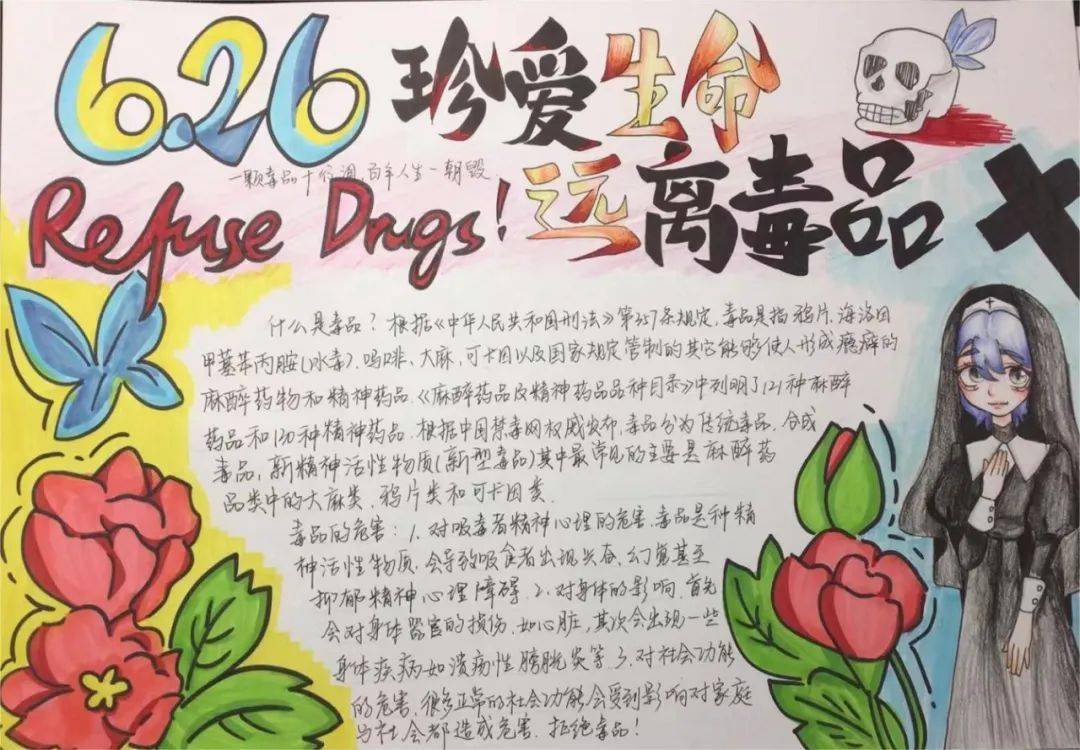 6.26 珍爱生命
一颗毒品十份泪,百年人生一朝毁.
Refuse Drugs! 远离毒品
什么是毒品?根据《中华人民共和国刑法》第357条规定,毒品是指鸦片、海洛因
甲基苯丙胺(冰毒)、吗啡、大麻、可卡因以及国家规定管制的其它能够使人形成瘾癖的
麻醉药物和精神药品.《麻醉药品及精神药品品种目录》中列明了121种麻醉
药品和130种精神药品.根据中国禁毒网权威发布,毒品分为传统毒品、合成
毒品,新精神活性物质(新型毒品)其中最常见的主要是麻醉药
品类中的大麻类、鸦片类和可卡因类.
毒品的危害:1.对吸毒者精神心理的危害.毒品是种精
神活性物质.会导致吸食者出现兴奋、幻觉甚至
抑郁精神心理障碍.2.对身体的影响.首先
会对身体器官的损伤.如心脏,其次会出现一些
身体疾病如溃疡性膀胱炎等.3.对社会功能
的危害.很多正常的社会功能会受到影响对家庭
与社会都造成危害.拒绝毒品!